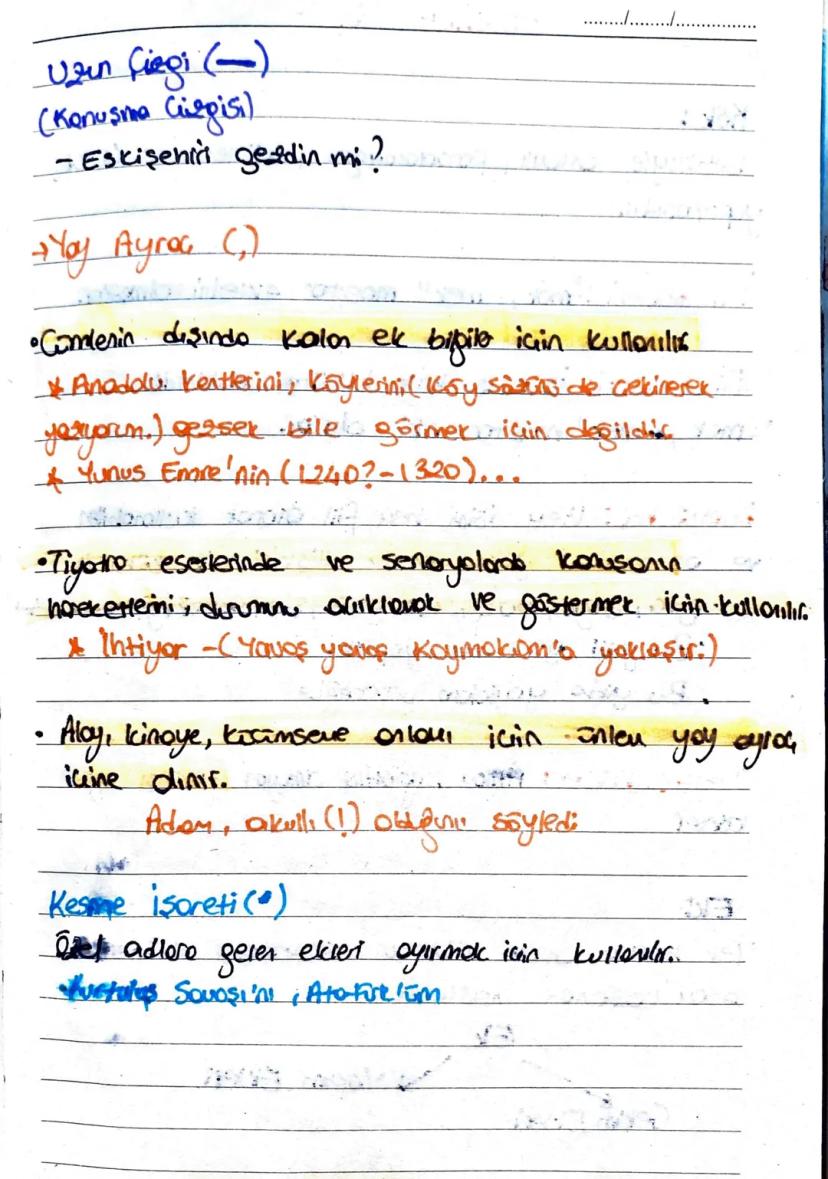 ......../......../................
Uzun Çizgi (—)
(Konuşma Çizgisi)
- Eskişehiri gezdin mi?
→Yay Ayraç (,)
•Cümlenin dışında kalan ek bilgiler için kullanılır
* Anadolu kentlerini, köylerini( Köy sözünü de çekinerek
yazıyorum.) gezsek bile görmek için değildir.
* Yunus Emre'nin (1240?-1320)...
•Tiyatro eserlerinde ve senaryolarda konuşanın
hareketlerini, durumunu açıklamak ve göstermek için kullanılır.
* İhtiyar -(Yavaş yavaş Kaymakam'a yaklaşır.)
• Alay, kinaye, küçümseme anlamı için ünlem yay ayraç
içine alınır.
Adam, akıllı (!) olduğunu söyledi
Kesme işareti (')
Özel adlara gelen ekleri ayırmak için kullanılır.
Kurtuluş Savaşı'nı, Atatürk'üm